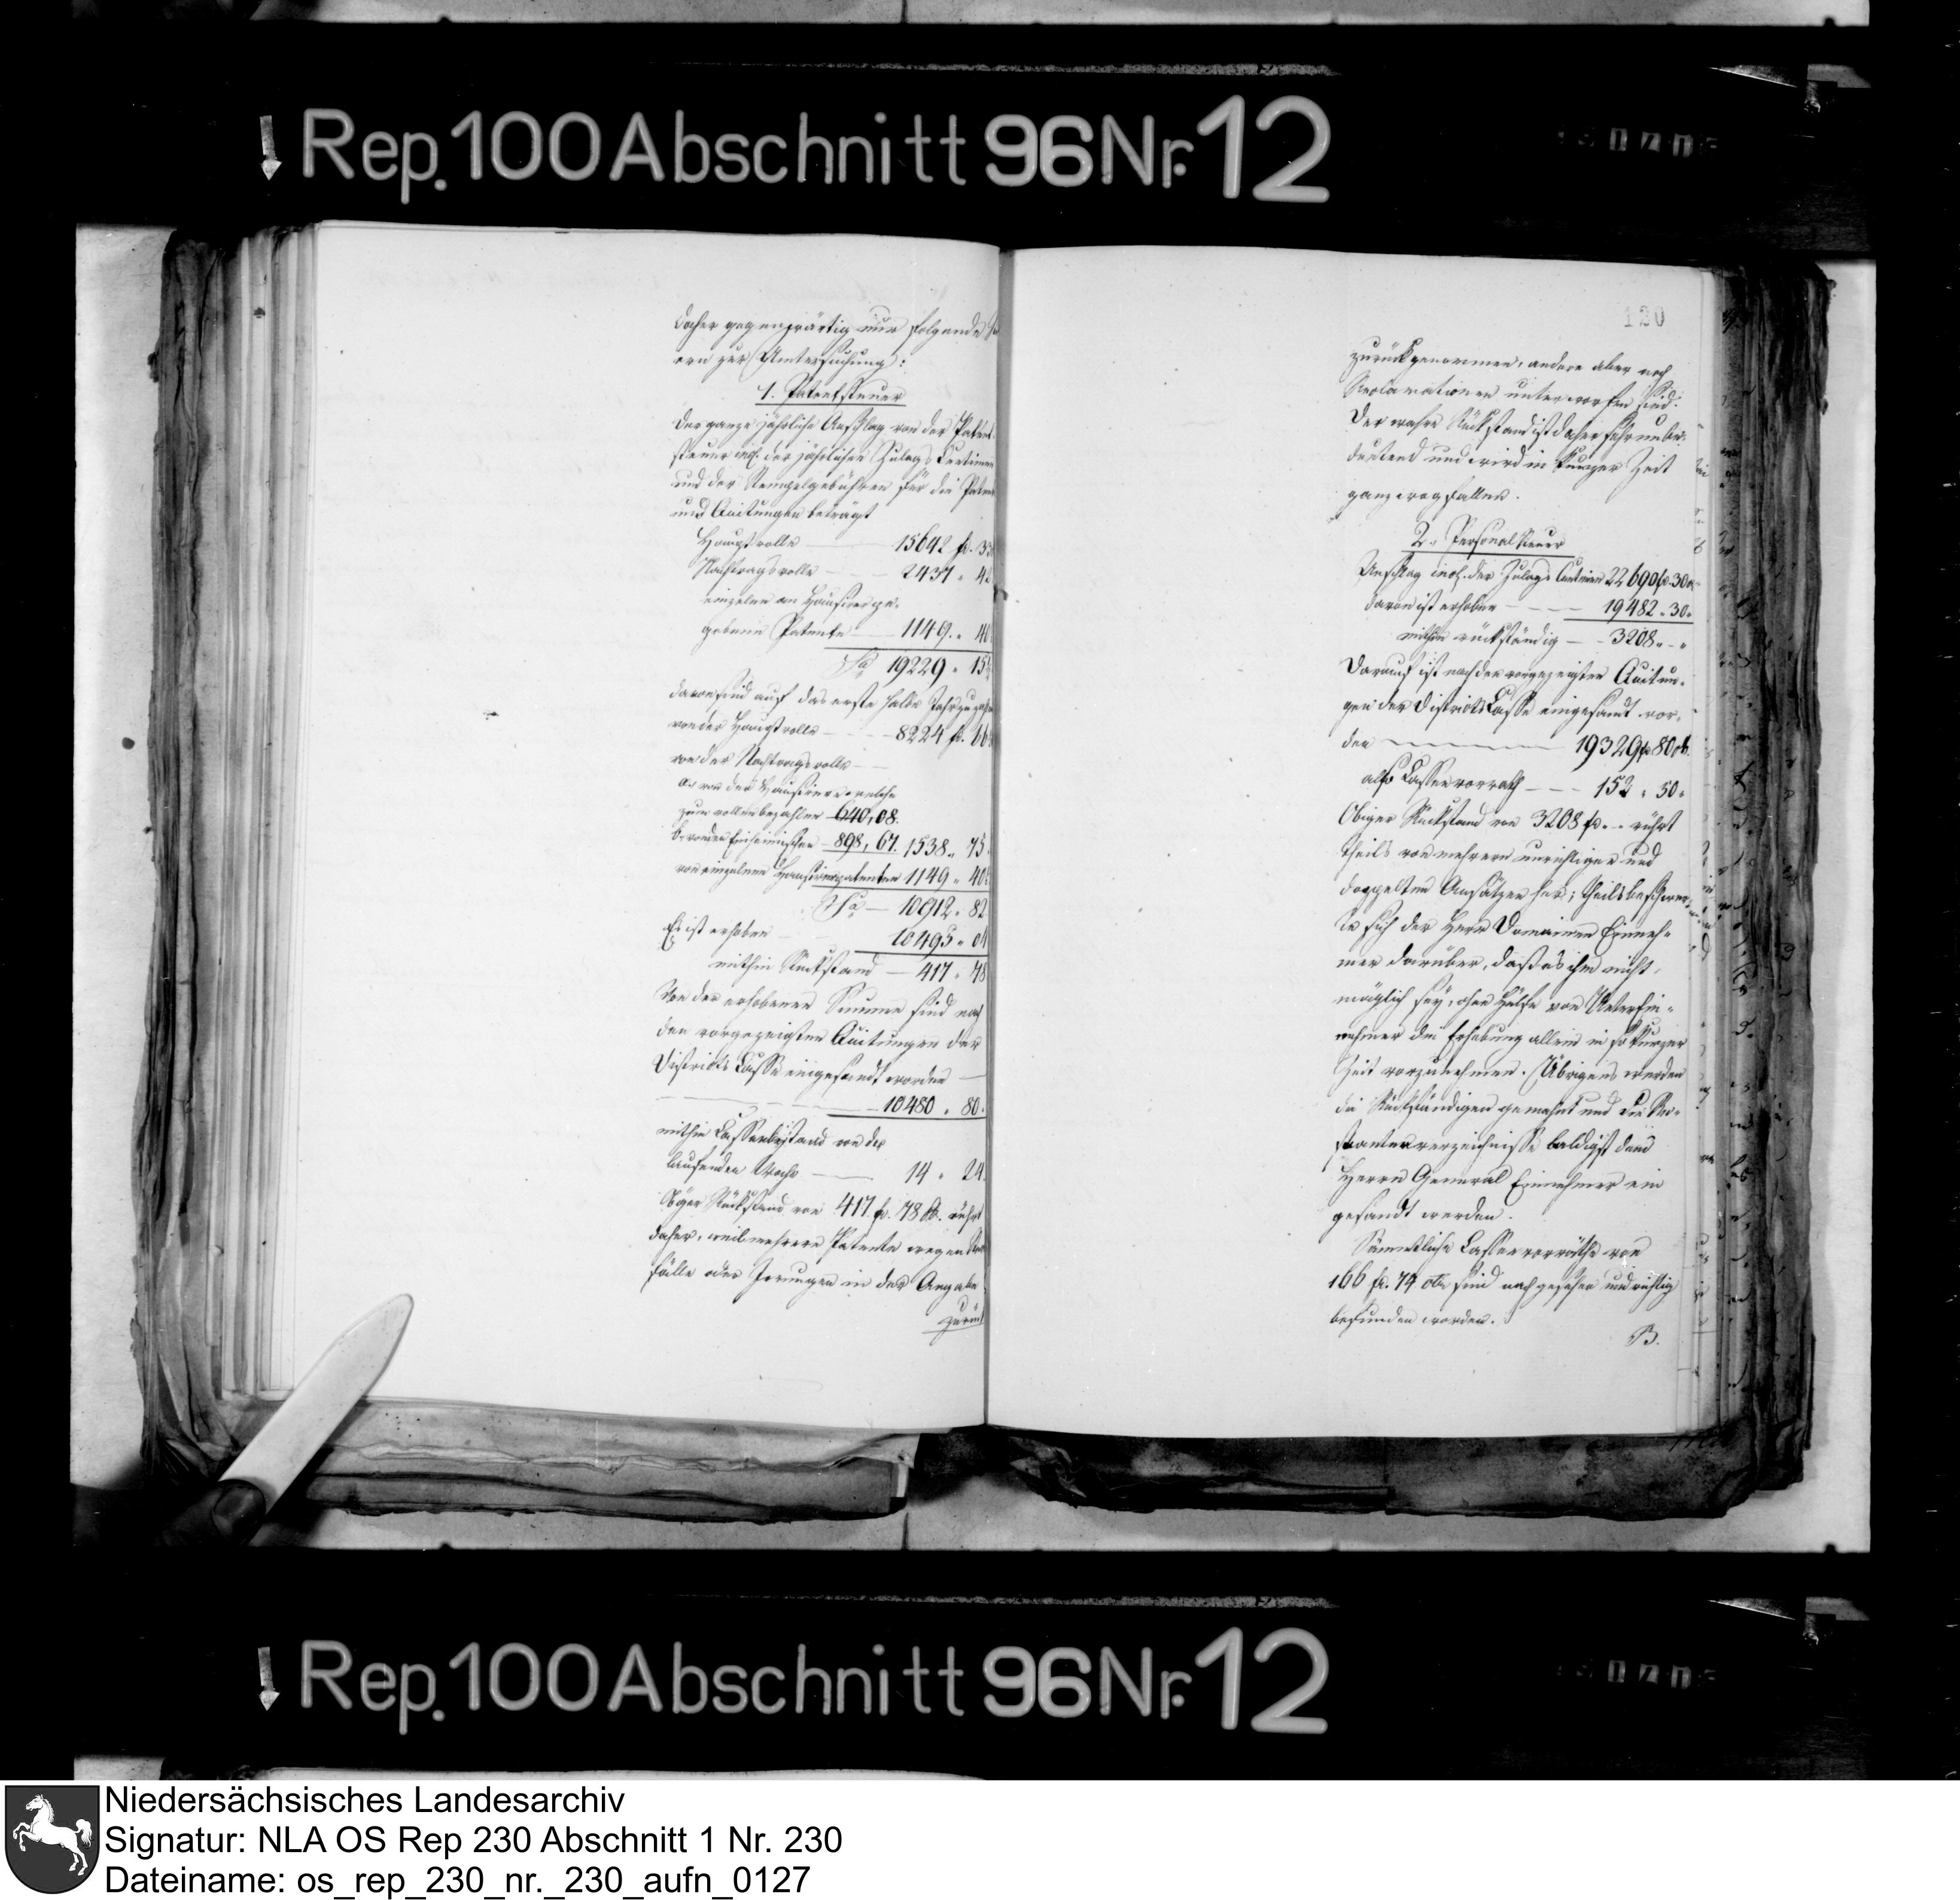 Rep. 100 Abschnitt 96 Nr. 12
daher gegenwärtig nur folgende
ern zur Untersuchung:
1. Patentsteuer
Der ganze jährliche Anschlag von der Patent-
steuer incl. der jährlichen Zulags Centimen
und der Stempelgebühren für die Patente
und Quitungen beträgt
Hauptrolle 15642 fr. 33
Nachtragsrolle 2437 " 42
einzelne an Hausirer ge-
gebene Patente 1149. " 40
Sa 19229 " 15
davon sind auf das erste halbe Jahr zu zahlen
von der Hauptrolle 8224 fr. 66
von der Nachtragsrolle
a. von den Hausirern welche
zum vollen bezahlen 640,08.
b. von den Einheimischen 898,67. 1538 " 75.
von einzelnen Hausirerpatenten 1149 " 40
Sa 10912 " 82
Es ist erhoben 10495 " 04
mithin Rückstand 417 " 78
Von der erhobenen Summe sind nach
den vorgezeigten Quitungen der
Districts Casse eingesandt worden
10480 " 80.
mithin Cassenbestand von der
laufenden Woche 14 " 24.
Obiger Rückstand von 417 fr. 78 Ct. rührt
daher, weil mehrere Patente wegen
fälle oder Irrungen in der Angabe
zurück
120
zurückgenommen, andere aber noch
Reclamationen unterworfen sind.
Der wahre Rückstand ist daher sehr unbe-
deutend und wird in kurzer Zeit
ganz wegfallen.
2. Personalsteuer
Anschlag incl. der Zulags Centimen 22690 fr. 30 c.
davon ist erhoben 19482 " 30 "
mithin rückständig 3208 " - "
Darauf ist nach den vorgezeigten Quitun-
gen der Districts Casse eingesandt wor-
den 19329 fr 80 ct.
also Cassenvorrath 152 " 50 "
Obiger Rückstand von 3208 fr. - rührt
theils von mehrern unrichtigen und
doppelten Ansätzen her; theils beschwer-
te sich der Herr Domainen Einneh-
mer darüber, daß es ihm nicht
möglich sey, ohne Hülfe von Unterein-
nehmer die Erhebung allein in so kurzer
Zeit vorzunehmen. Übrigens werden
die Rückständigen gemahnt und die Re-
stantenverzeichnisse baldigst dem
Herrn General Einnehmer ein
gesandt werden.
Sämmtliche Cassenvorräthe von
166 fr. 74 cts sind nachgesehen und richtig
befunden worden.
B.
Rep. 100 Abschnitt 96 Nr. 12
Niedersächsisches Landesarchiv
Signatur: NLA OS Rep 230 Abschnitt 1 Nr. 230
Dateiname: os_rep_230_nr._230_aufn_0127